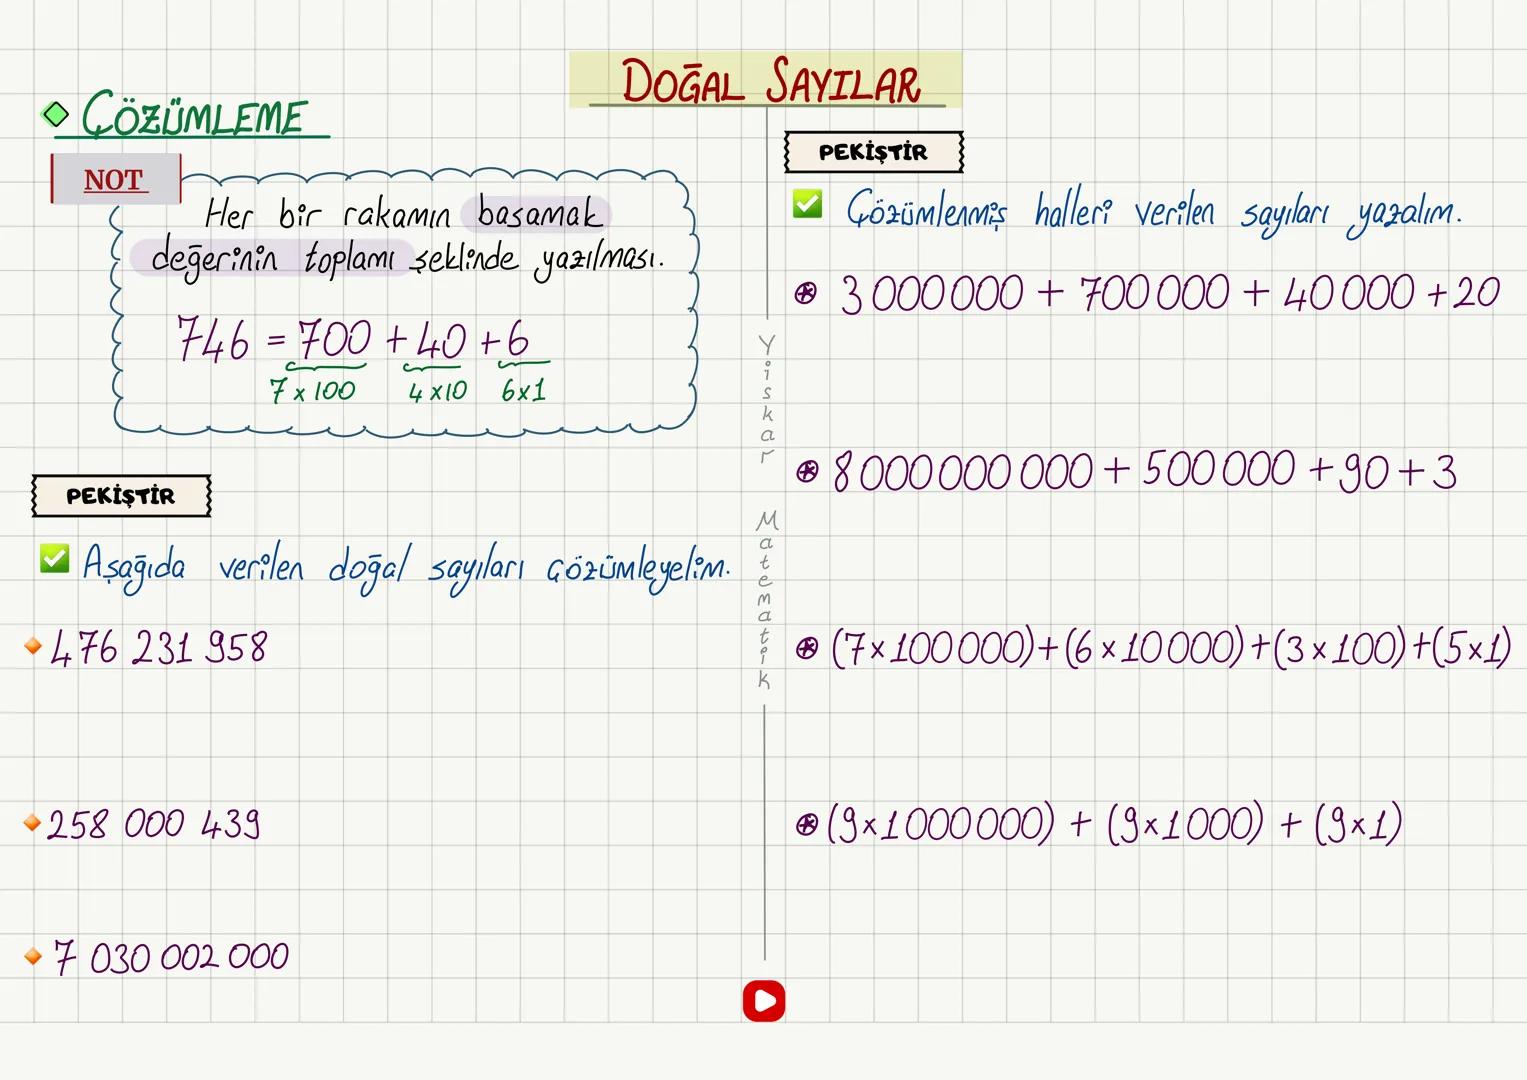 DOĞAL SAYILAR
ÇÖZÜMLEME
NOT
Her bir rakamın basamak
değerinin toplamı şeklinde yazılması.
746 = 700 + 40 + 6
7 x 100 4 x 10 6x1
PEKİŞTİR
Aşağıda verilen doğal sayıları çözümleyelim.
476 231 958
258 000 439
7 030 002 000
Yiskar Matematik
PEKİŞTİR
Çözümlenmiş halleri verilen sayıları yazalım.
3 000 000 + 700 000 + 40 000 + 20
8 000 000 000 + 500 000 + 90 + 3
(7x100 000)+(6 x 10 000)+(3 x 100)+(5x1)
(9x1 000 000) + (9x1000) + (9x1)